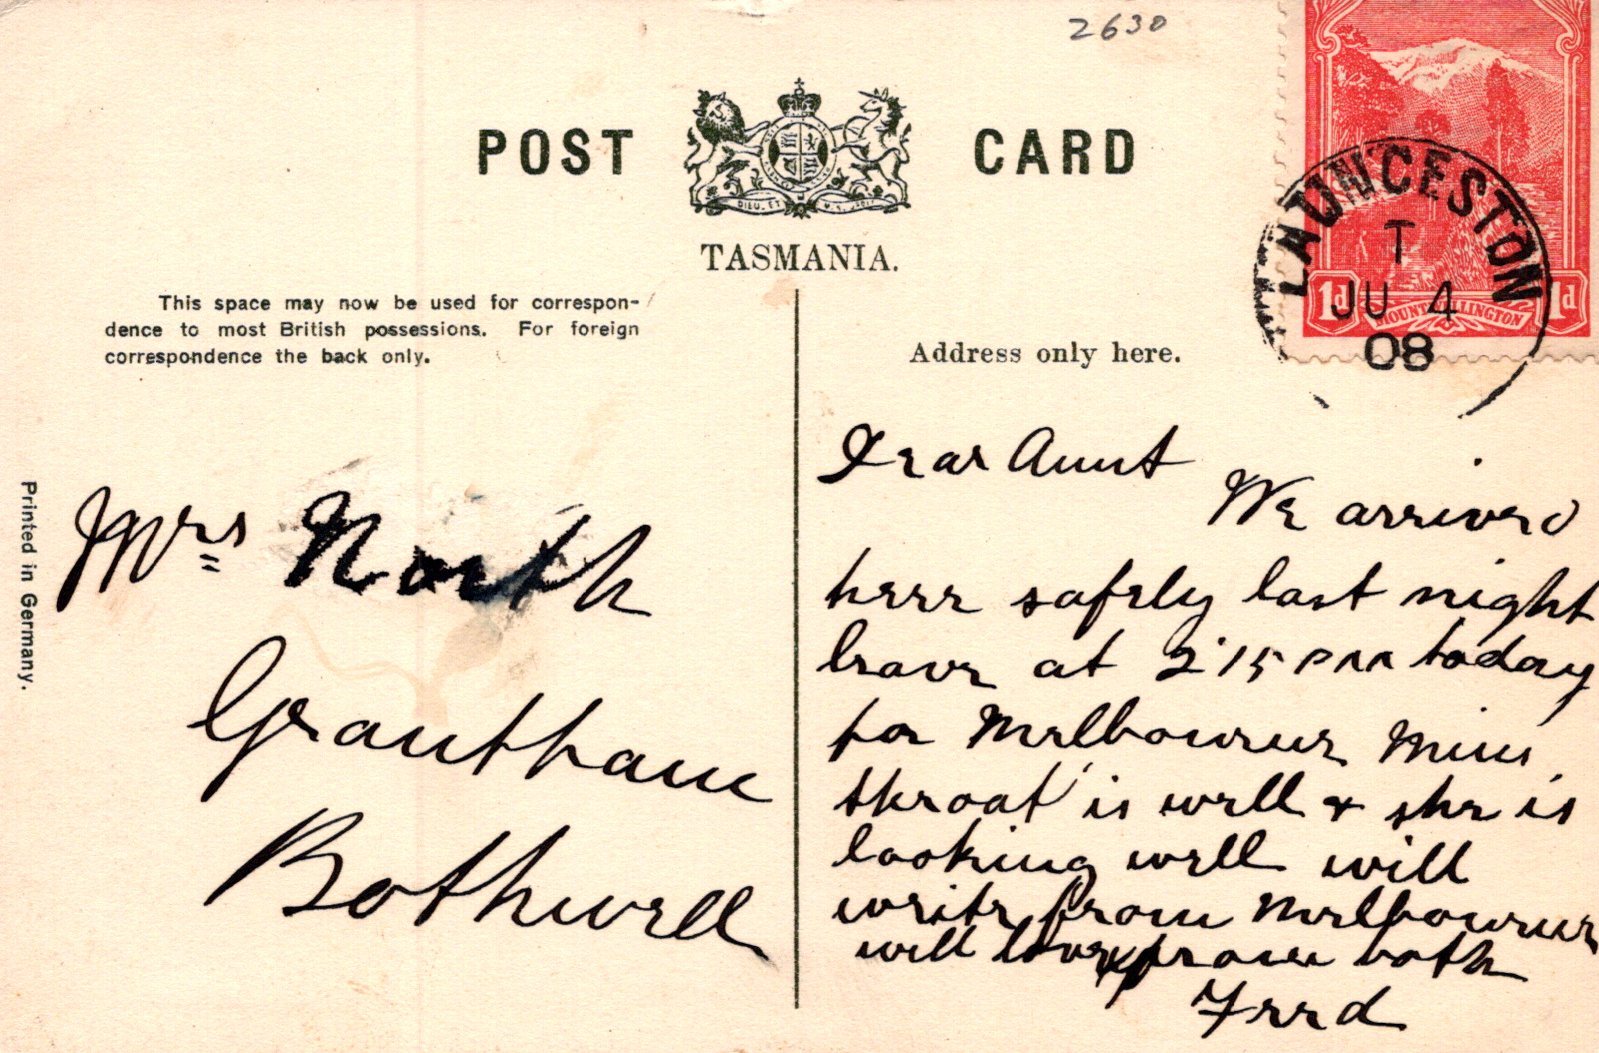 2630
POST CARD
DIEU ET
TASMANIA.
LAUNCESTON
T
JU 4
08
1d 1d
MOUNT
This space may now be used for correspon-
dence to most British possessions. For foreign
correspondence the back only.
Address only here.
Printed in Germany.
Mrs North
Grantham
Bothwell
Dear Aunt
We arrived
here safely last night
leave at 2.15 PM today
for Melbourne
throat is well & she is
looking well will
write from Melbourne
will love from both
Fred